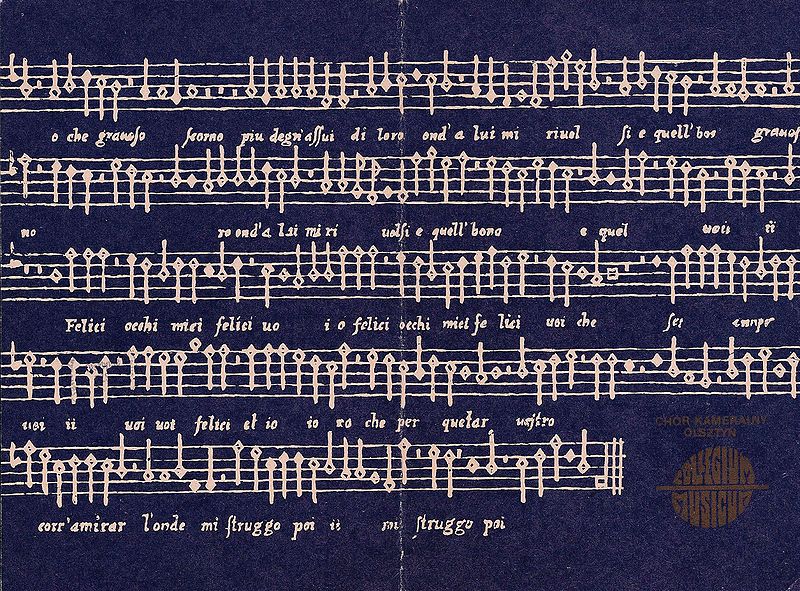 o che grauoso scorno piu degn'assui di loro ond'a lui mi riuol si e quell'bor grauos
no ro ond'a lui mi ri uolsi e quell'bono e quel uoii ii
Felici occhi miei felici uo i o felici occhi miei fe lici uoi che
uoi ii uoi uoi felici et io io ro che per quetar uostro
CHÓR KAMERALNY
OLSZTYN
COLLEGIUM
MUSICUM
corr'amirar l'onde mi struggo poi ii mi struggo poi